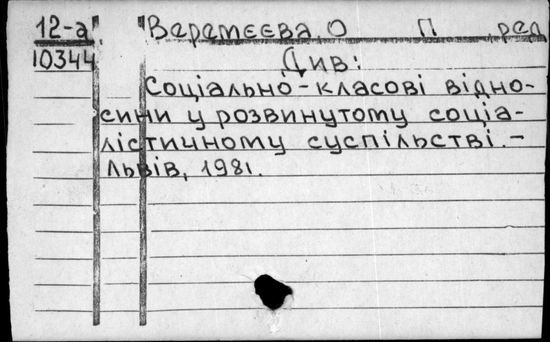 12-а Веремєєва О П ред
10344 Див:
Соціально-класові відно-
сини у розвинутому соціа-
лістичному суспільстві.-
Львів, 1981.